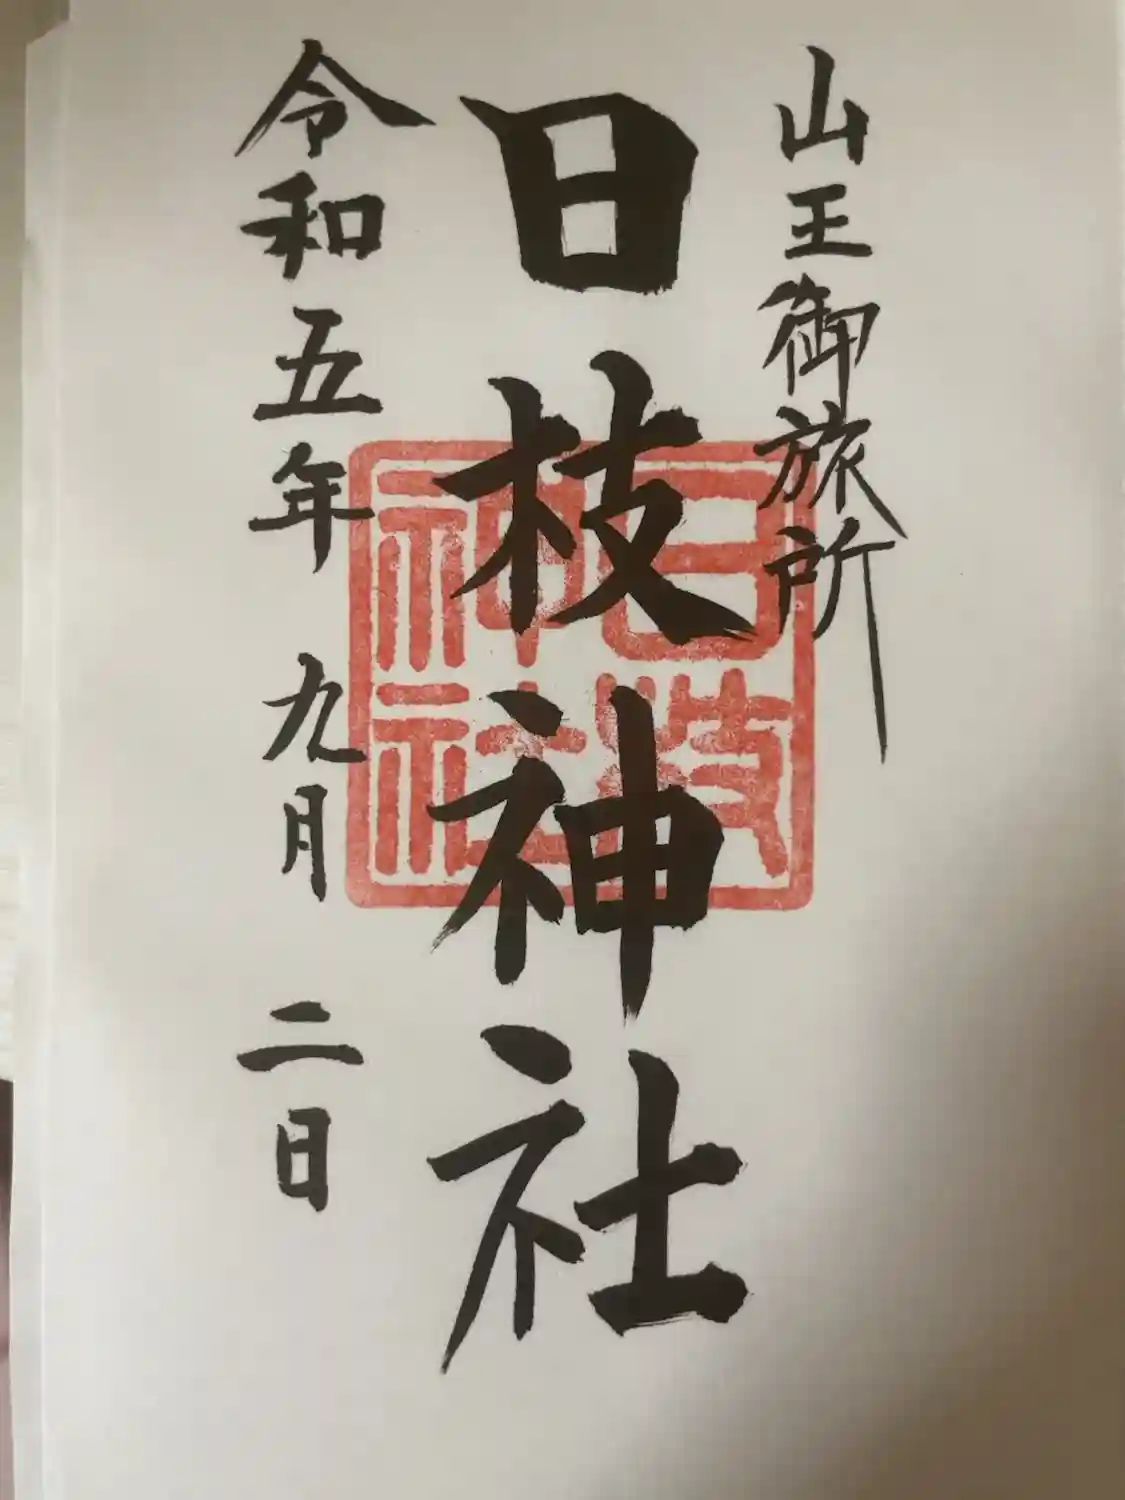 山王御旅所
日枝神社
令和五年九月二日
日枝
神社